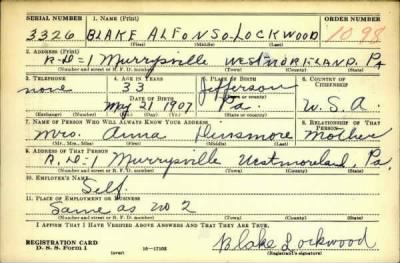 SERIAL NUMBER 1. NAME (Print) ORDER NUMBER
3326 BLAKE ALFONSO LOCKWOOD 1098
(First) (Middle) (Last)
2. ADDRESS (Print)
R.D=1 Murrysville WESTMORELAND. PA
(Number and street or R. F. D. number) (Town) (County) (State)
3. TELEPHONE 4. AGE IN YEARS 5. PLACE OF BIRTH 6. COUNTRY OF CITIZENSHIP
none 33 Jefferson
DATE OF BIRTH
May 21 1907 Pa. U.S.A.
(Mo.) (Day) (Yr.) (State or country)
7. NAME OF PERSON WHO WILL ALWAYS KNOW YOUR ADDRESS 8. RELATIONSHIP OF THAT PERSON
Mrs. Anna Dinsmore Mother
(Mr., Mrs., Miss) (First) (Middle) (Last)
9. ADDRESS OF THAT PERSON
R.D=1 Murrysville Westmoreland, Pa.
(Number and street or R. F. D. number) (Town) (County) (State)
10. EMPLOYER'S NAME
Self.
11. PLACE OF EMPLOYMENT OR BUSINESS
Same as no 2
(Number and street or R. F. D. number) (Town) (County) (State)
I AFFIRM THAT I HAVE VERIFIED ABOVE ANSWERS AND THAT THEY ARE TRUE.
REGISTRATION CARD
D. S. S. Form 1 (over) 16—17105 Blake Lockwood
(Registrant's signature)